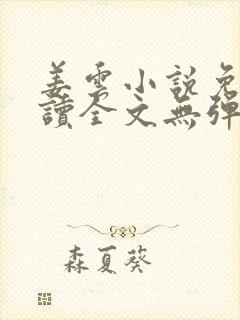 姜雲小說免
讀全文無彈
森夏葵